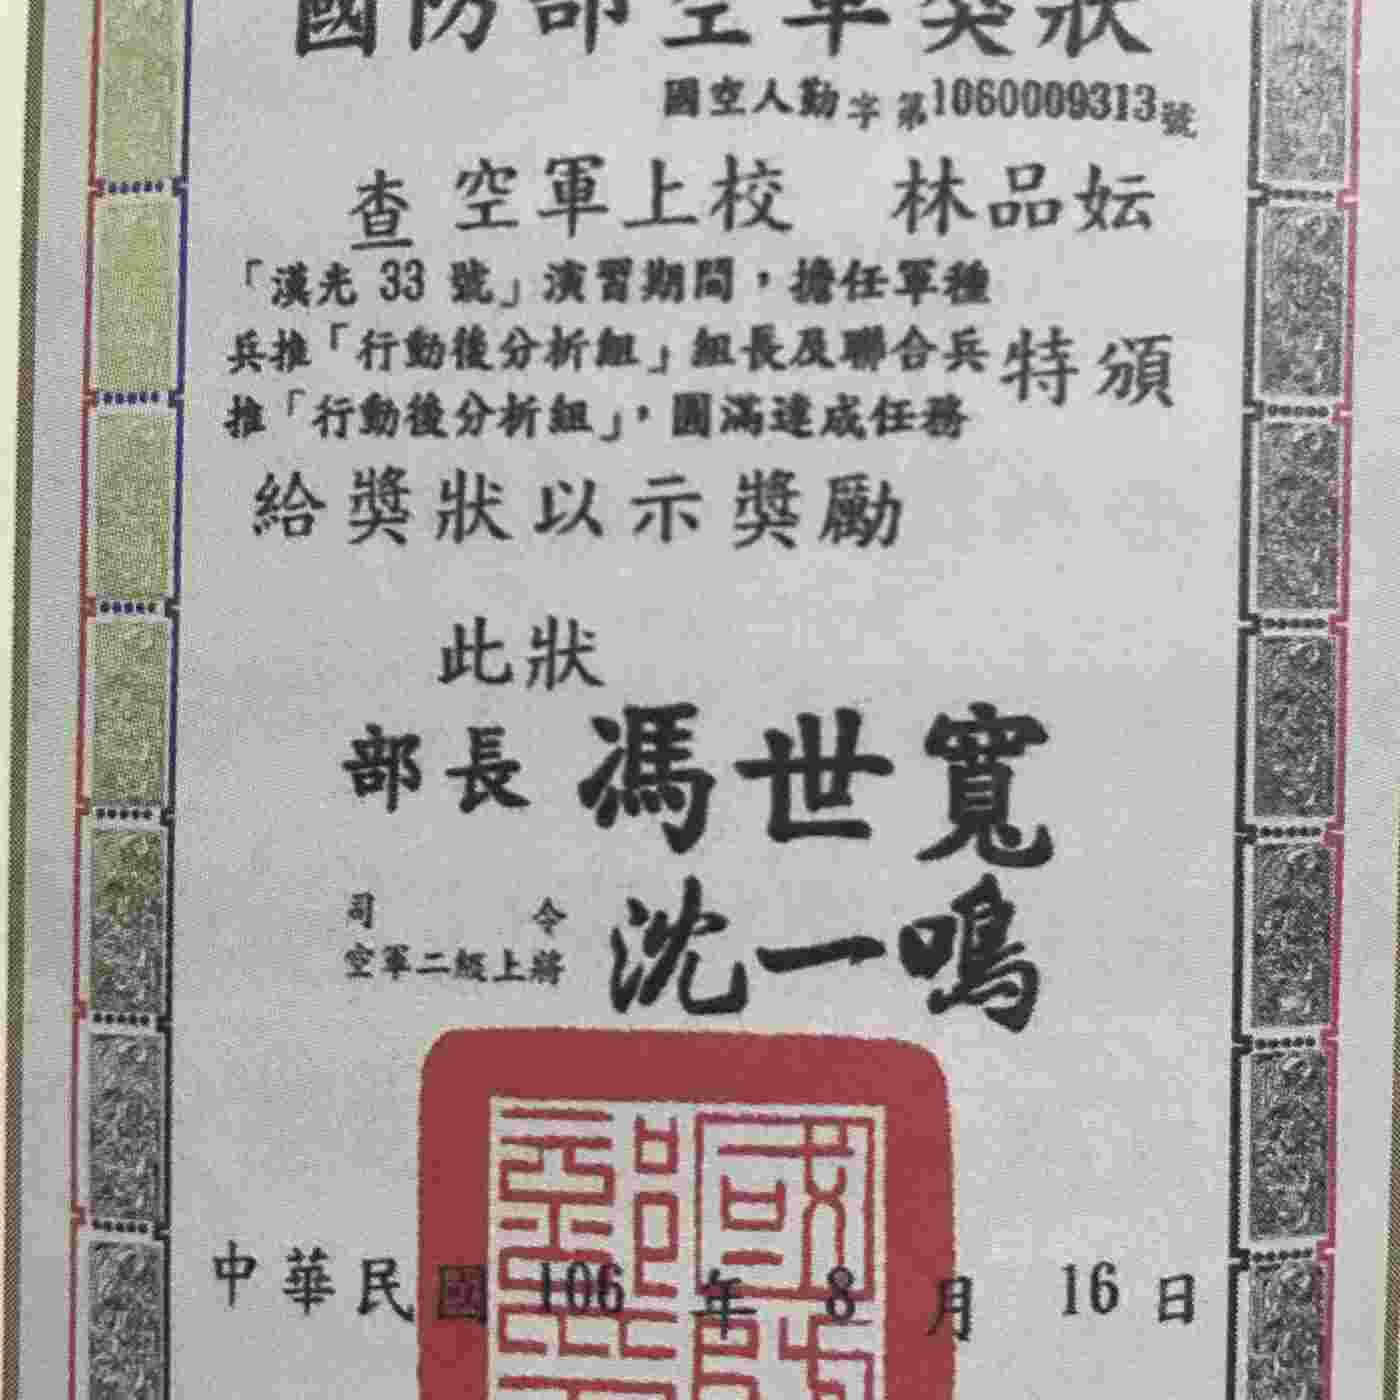 國防部空軍獎狀
國空人勤字第1060009313號
查 空軍上校 林品妘
「漢光 33 號」演習期間，擔任軍種
兵推「行動後分析組」組長及聯合兵
推「行動後分析組」，圓滿達成任務
特頒
給獎狀以示獎勵
此狀
部長 馮世寬
司令
空軍二級上將
沈一鳴
中華民國 106 年 8 月 16 日